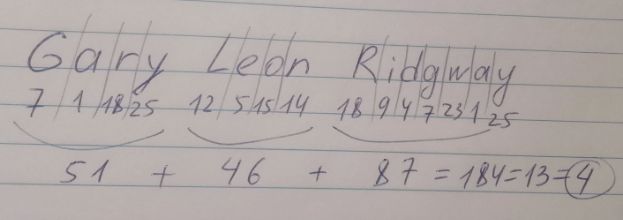 Gary Leon Ridgway
7 1 18 25 12 5 15 14 18 9 4 7 23 1 25
51 + 46 + 87 = 184 = 13 = 4